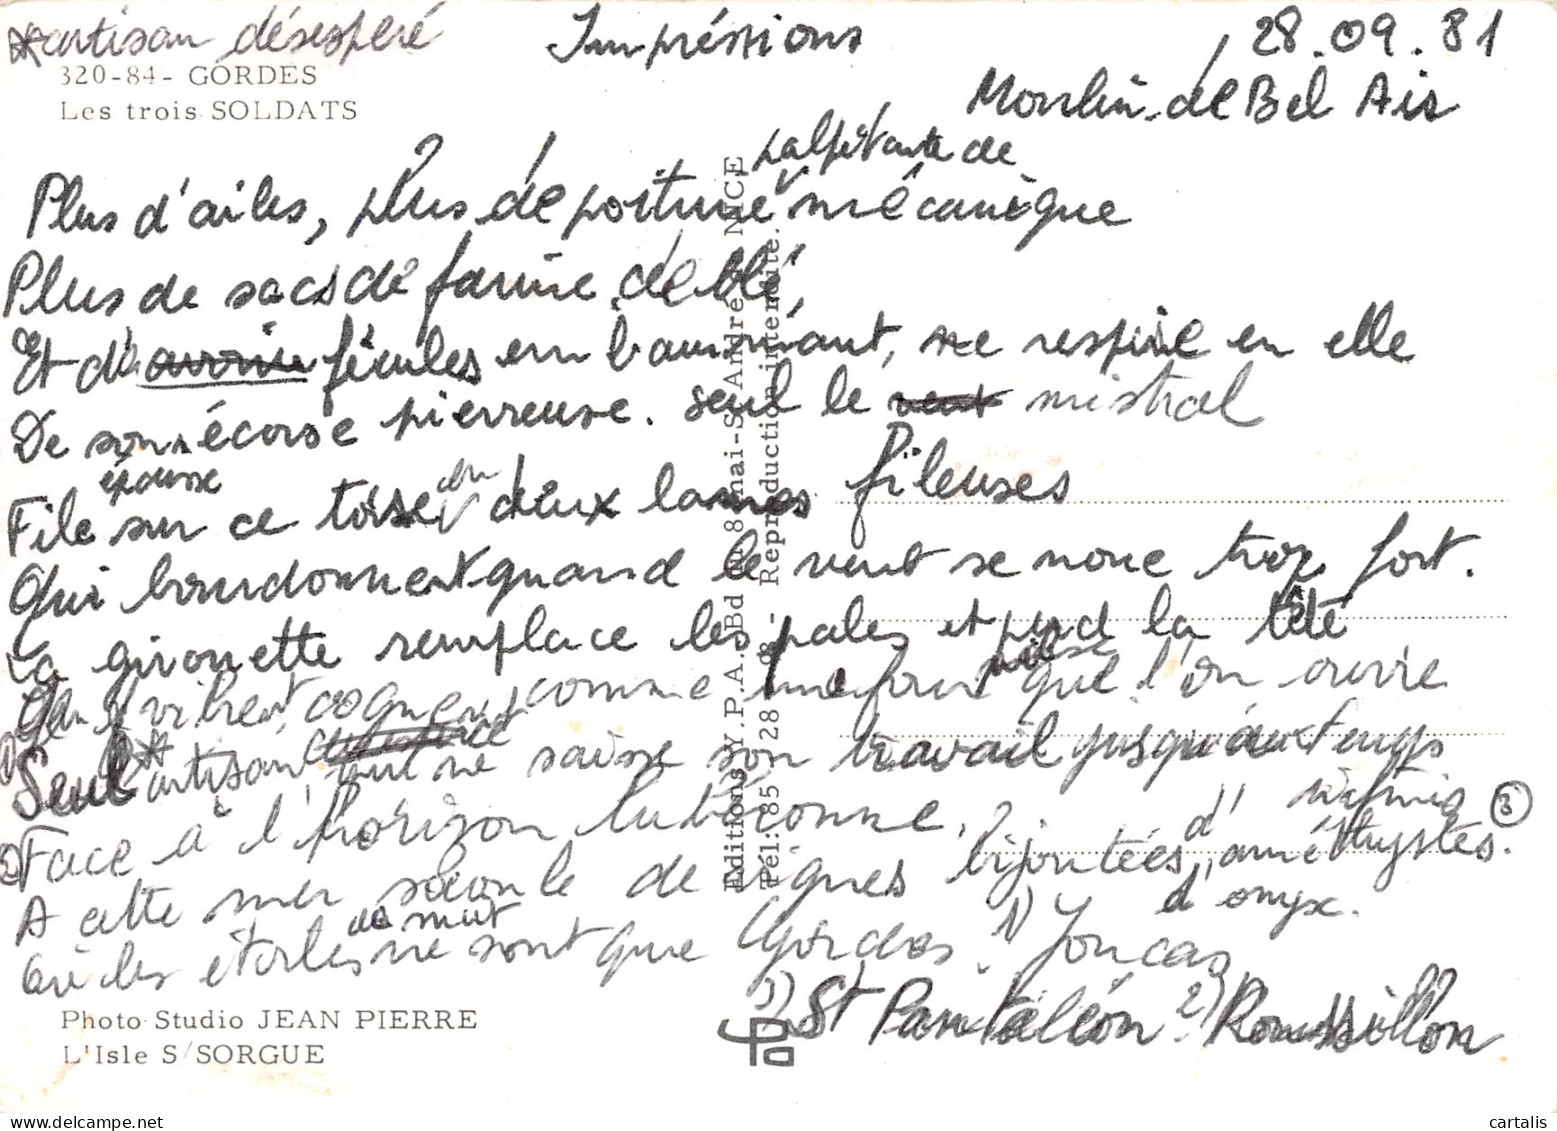 *artisan désespéré
Impréssions
28.09.81
320-84- GORDES
Les trois SOLDATS
Moulin de Bel Air
palpitante de
Plus d'ailes, plus de poiture mécanique
Plus de sacs de farine de blé,
Et de fécules embaumant, ne respire en elle
De son écorse pierreuse. seul le vent mistral
épaisse
File sur ce toise en deux lames fileuses
Qui bourdonnent quand le vent se noue trop fort.
La girouette remplace les pales et perd la tête
vibrent, cognent, comme une que l'on ouvre
1) Seul * artisan qui ne saisse son travail jusqu'au temps
2) Face à l'horizon lubéronne,
A cette mer saoule de vignes bijoutées, d'améthystes.
d'
3
d'onyx.
où les étoiles de nuit ne sont que Gordes, 1) Joucas,
3) St Pantaléon 2) Roussillon
Photo Studio JEAN PIERRE
L'Isle S/SORGUE
Editions Y.P.A. Bd du 8 mai-S. André NICE
Tél: 85 28 - Reproduction interdite.
cartalis